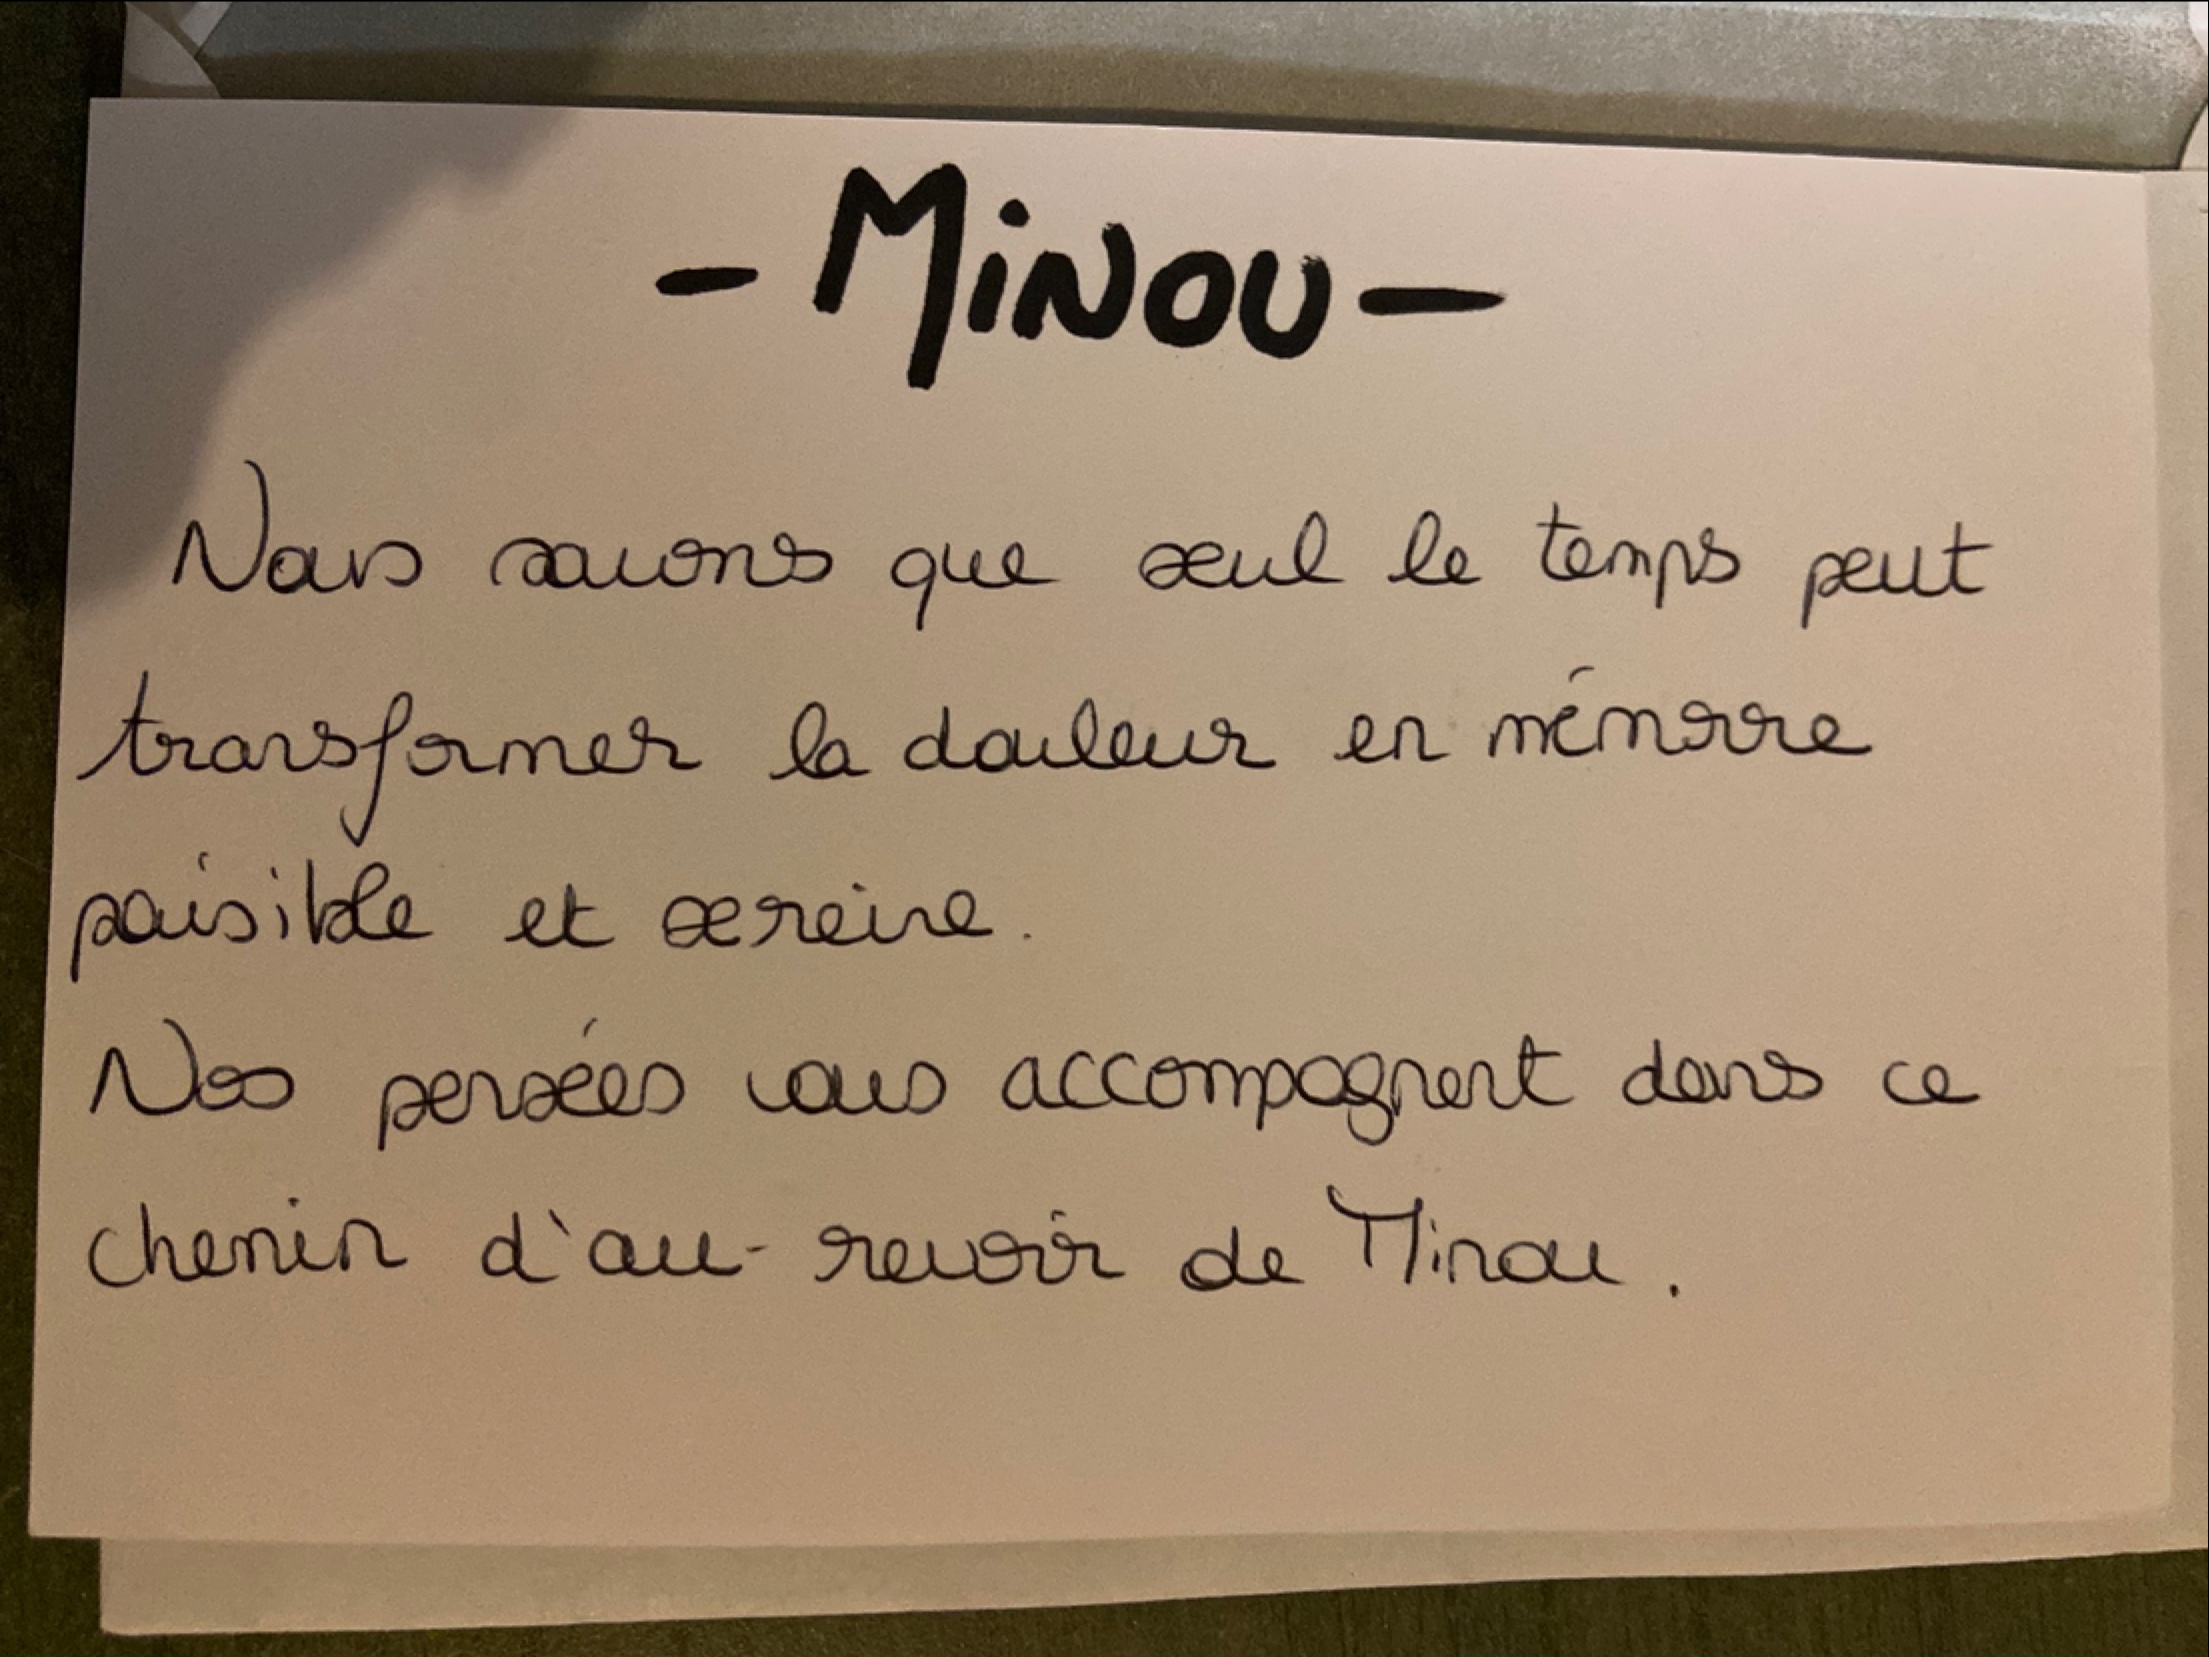 - MiNOU -
Nous savons que seul le temps peut
transformer la douleur en mémoire
paisible et sereine.
Nos pensées vous accompagnent dans ce
chemin d'au-revoir de Minou.